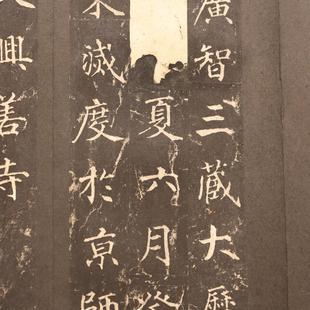 廣智三藏大曆
夏六月癸
未滅度於亰師
大興善寺